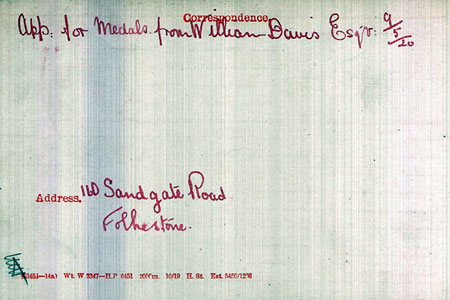 Correspondence.
App: for Medals. from William Davis Esqr: 9/5/20
Address. 116 Sandgate Road
Folkestone.
Wt. W 3347—H.P. 6451 200m. 10/19 H. St. Est.